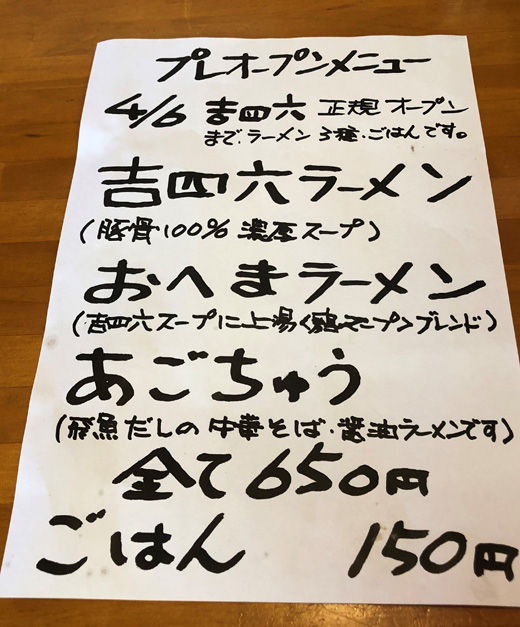 プレオープンメニュー
4/6 吉四六 正規 オープン
まで、ラーメン 3種・ごはんです。
吉四六ラーメン
(豚骨100% 濃厚スープ)
おへまラーメン
(吉四六スープに上湯く鶏ベースプンブレンド)
あごちゅう
(飛魚だしの 中華そば・醤油ラーメンです)
全て650円
ごはん 150円